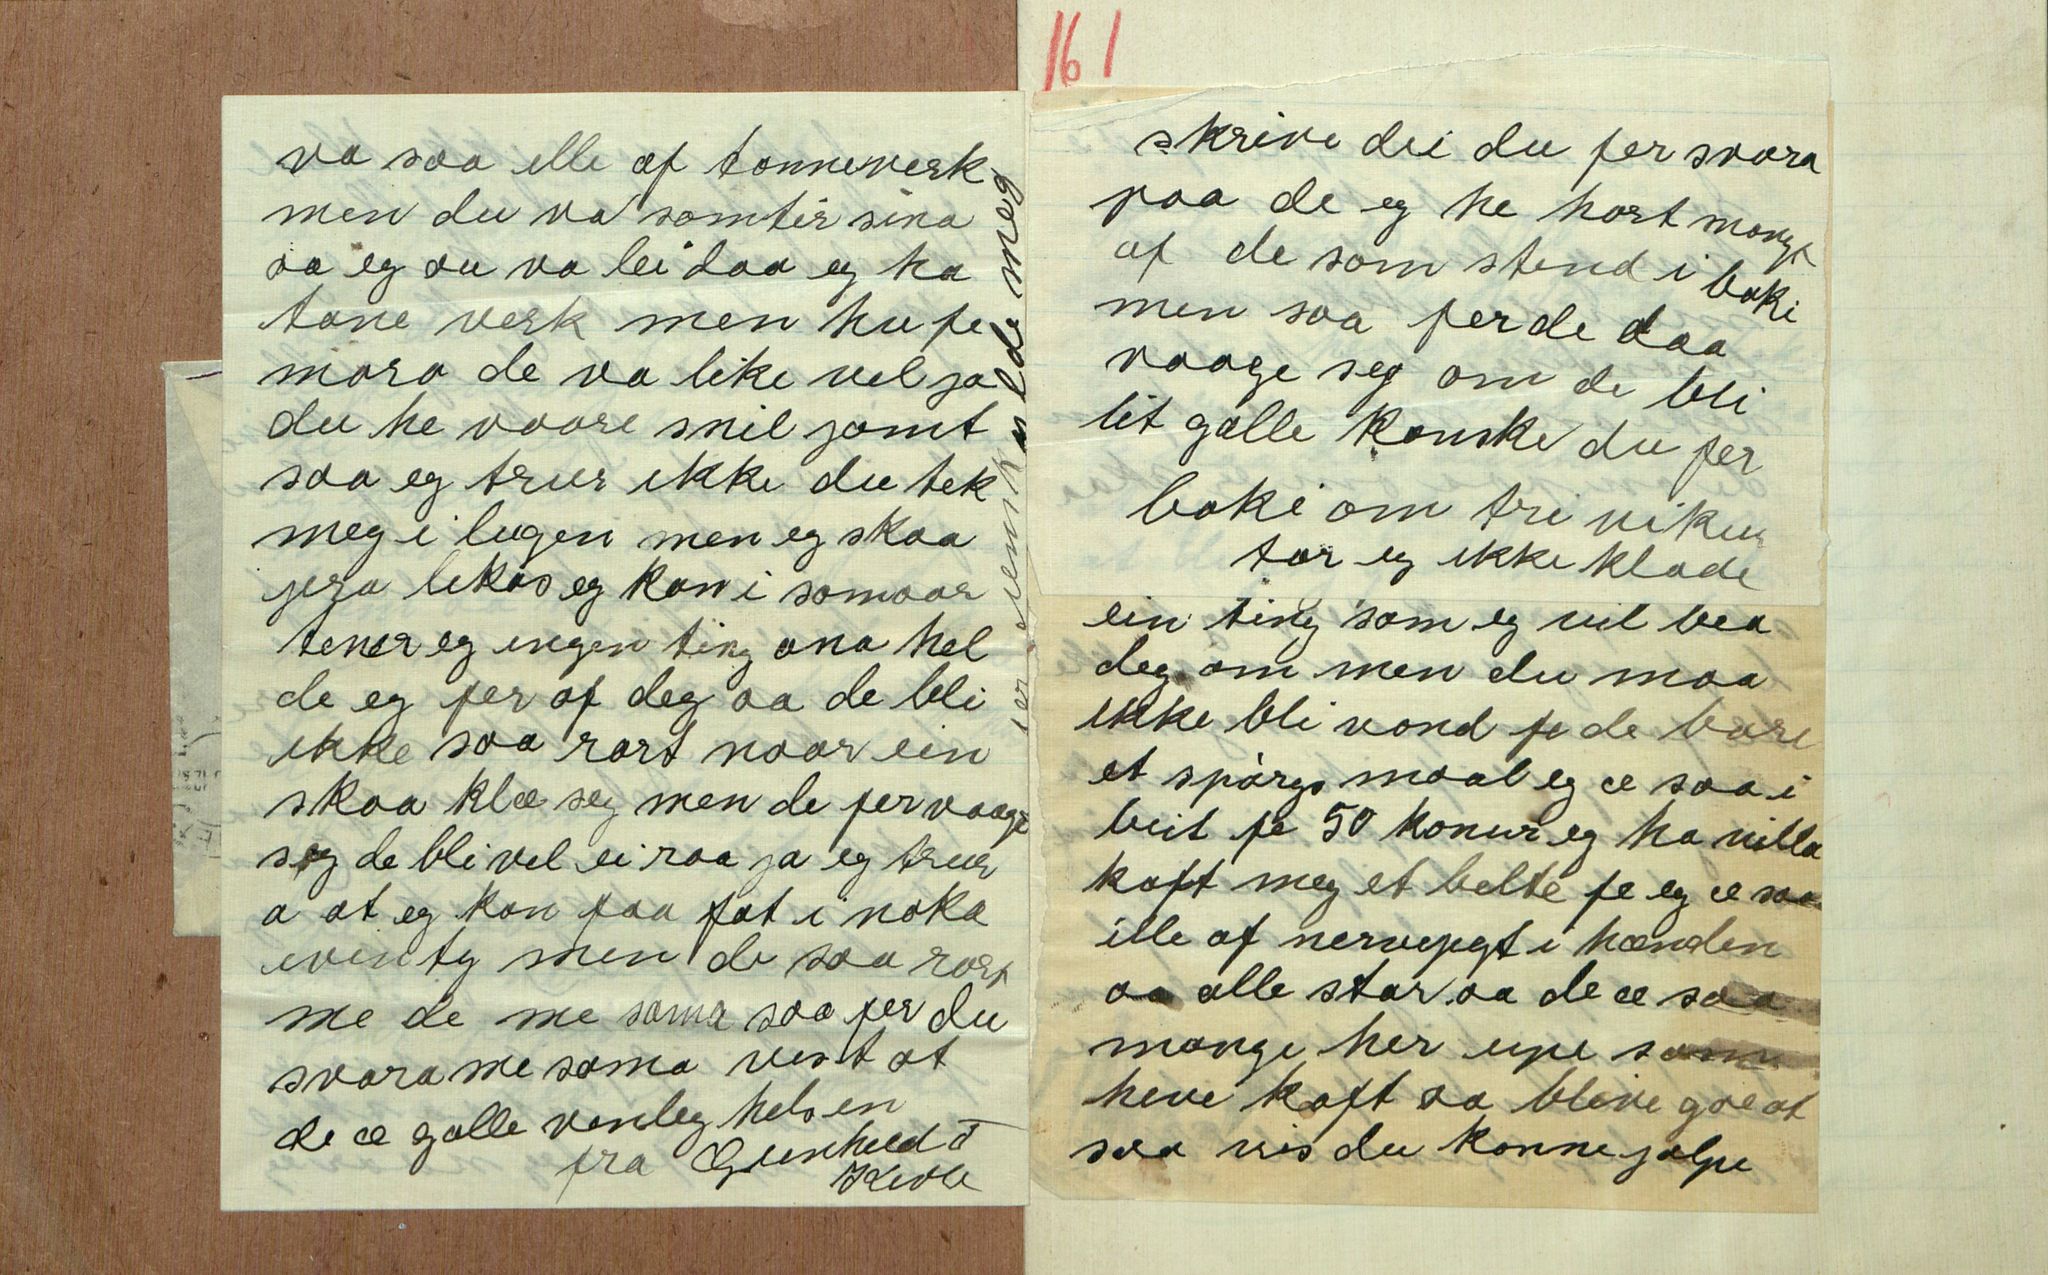 va saa ille af tonneverk
men du va somtir sina
aa eg au va lei daa eg ha
tone verk men hu fe
moro de va like vel ja
du he voore snil jamt
saa eg trur ikke du tek
meg i lugen men eg skaa
jera likas eg kan i somaar
tener eg ingen ting ana hel
de eg fer af deg aa de bli
ikke saa rart naar ein
skaa klæ seg men de fer vaage
seg de bli vel ei raa ja eg trur
a at eg kan faa fat i noka
eventy men de saa rart
me de me sama saa fer du
svara me sama vist at
de æ galle venleg helsen
fra Gunheld T
Kivle
meg
161
skrive dei du fer svara
paa de eg he hort mangt
af de som stend i boki
men saa fer de daa
vaage seg om de bli
lit galle kanske du fer
boki om tri vikur
tor eg ikke klade
ein ting som eg vil bea
deg om men du maa
ikke bli vond fe de bare
et spørgsmaal eg æ saa i
beit fe 50 konur eg ha villa
kaft meg et belte fe eg æ saa
ille af nervegegt i hænden
aa alle star aa de æ saa
mange her upe som
heve kaft aa blive goe at
saa vis du konne jalpe